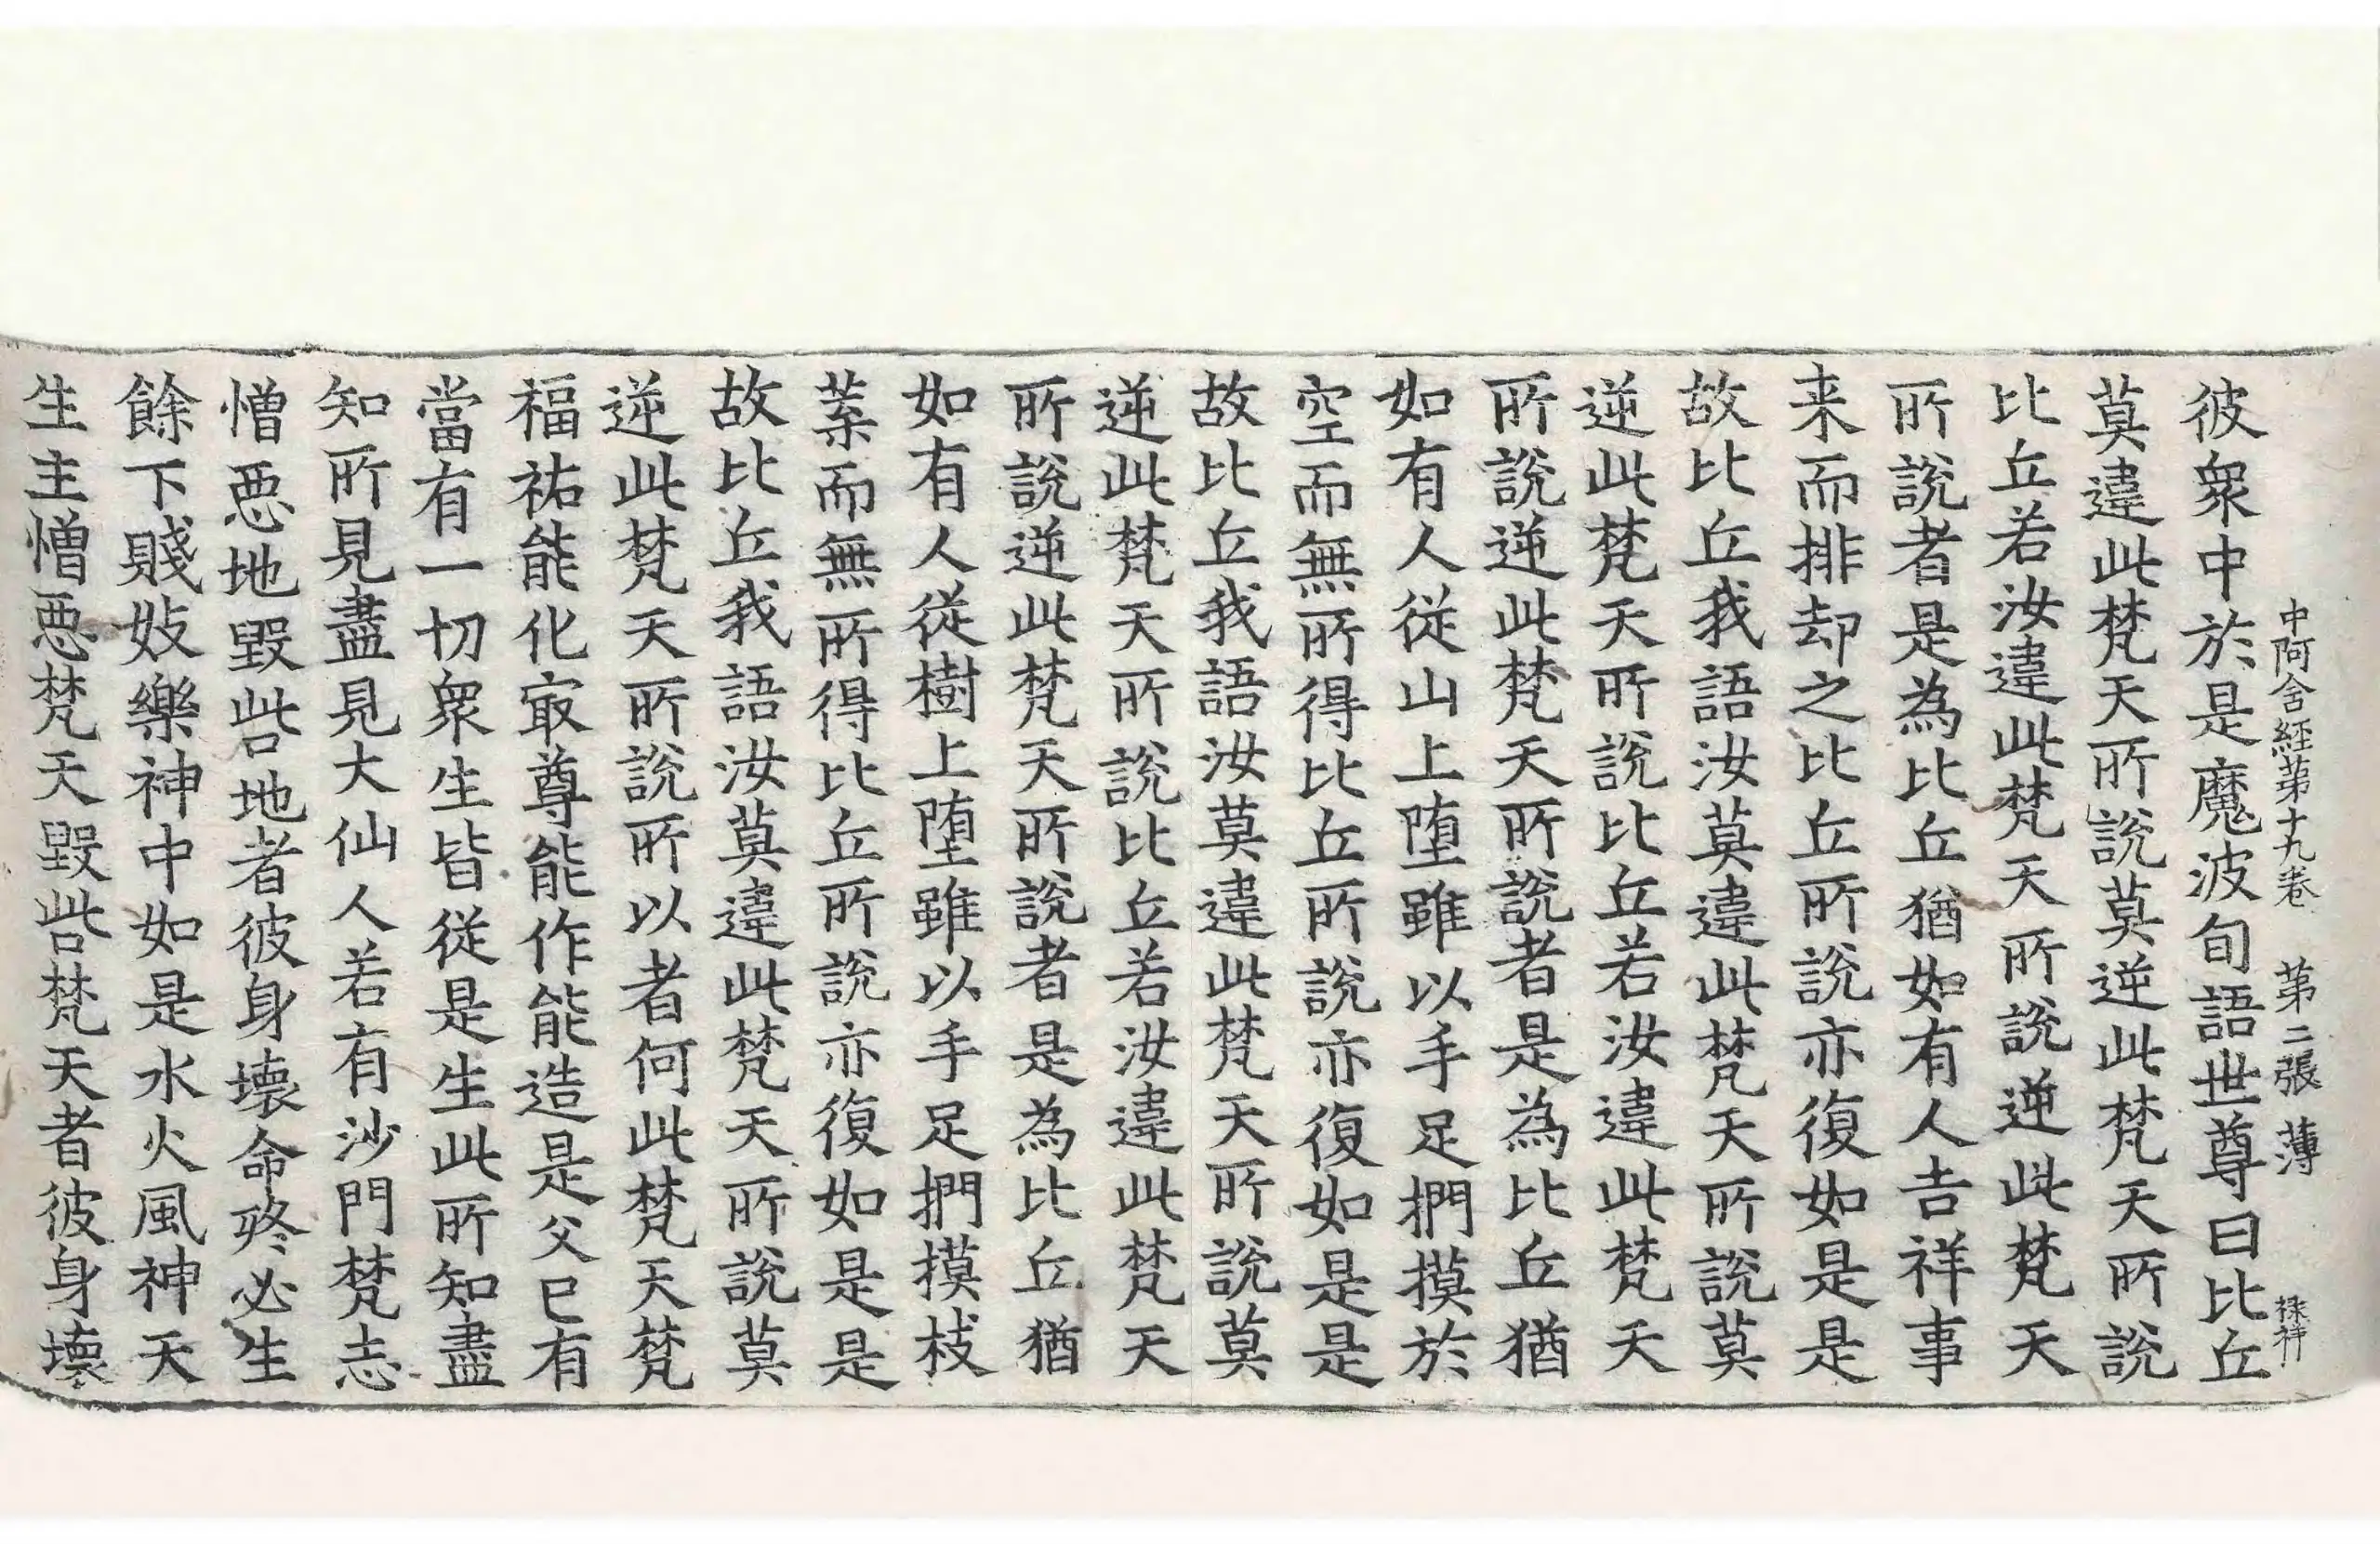 中阿含經第十九卷 第二張 薄
彼衆中於是魔波旬語世尊曰比丘
莫違此梵天所說莫逆此梵天所說
比丘若汝違此梵天所說逆此梵天
所說者是為比丘猶如有人吉祥事
来而排却之比丘所說亦復如是是
故比丘我語汝莫違此梵天所說莫
逆此梵天所說比丘若汝違此梵天
所說逆此梵天所說者是為比丘猶
如有人從山上墮雖以手足捫摸於
空而無所得比丘所說亦復如是是
故比丘我語汝莫違此梵天所說莫
逆此梵天所說比丘若汝違此梵天
所說逆此梵天所說者是為比丘猶
如有人從樹上墮雖以手足捫摸枝
葉而無所得比丘所說亦復如是是
故比丘我語汝莫違此梵天所說莫
逆此梵天所說所以者何此梵天梵
福祐能化㝡尊能作能造是父已有
當有一切衆生皆從是生此所知盡
知所見盡見大仙人若有沙門梵志
憎惡地毀呰地者彼身壞命終必生
餘下賤妓樂神中如是水火風神天
生主憎惡梵天毀呰梵天者彼身壞